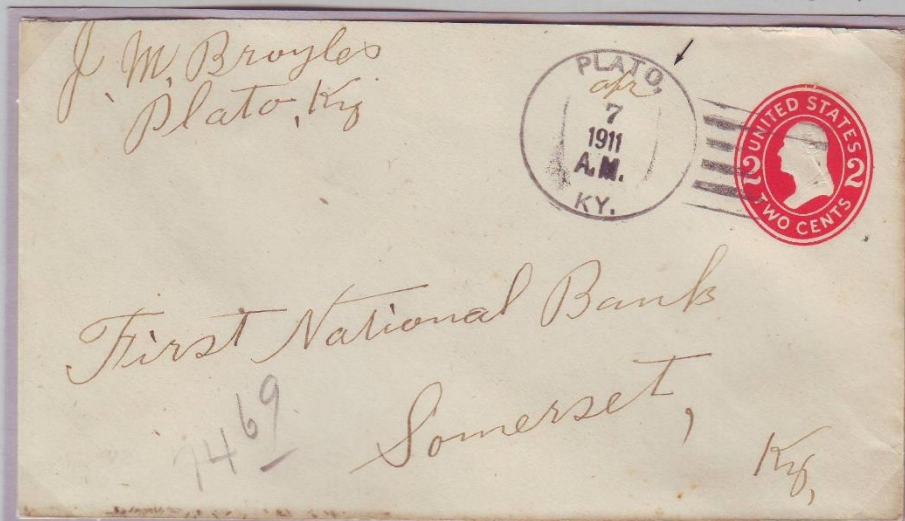 J. M. Broyles
Plato, Ky
PLATO,
apr
7
1911
A.M.
KY.
UNITED STATES
2 2
TWO CENTS
First National Bank
Somerset,
Ky,
7469